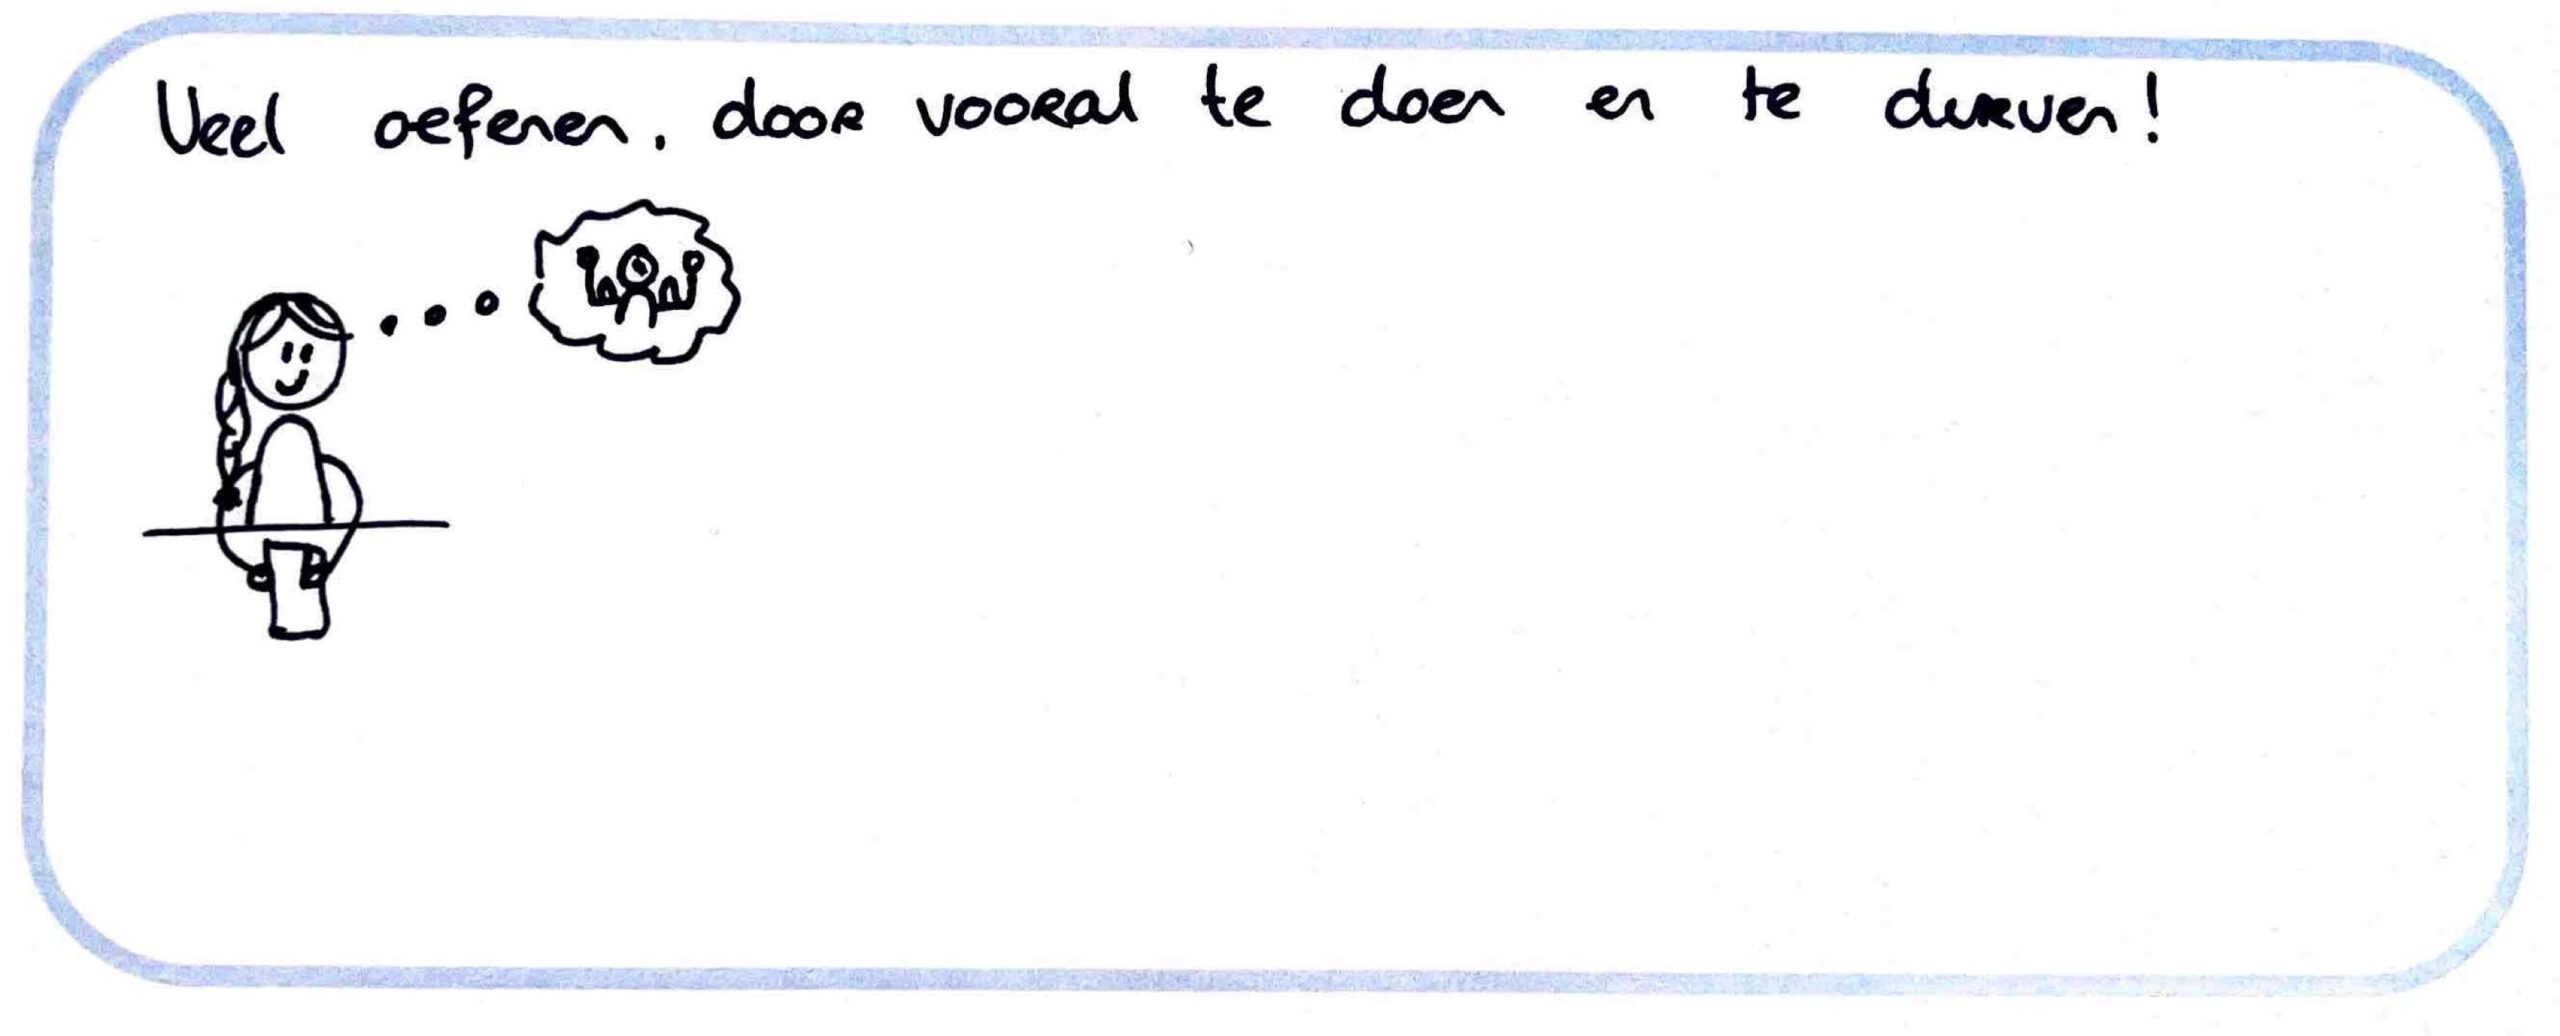 Veel oefenen, door vooral te doen en te durven!